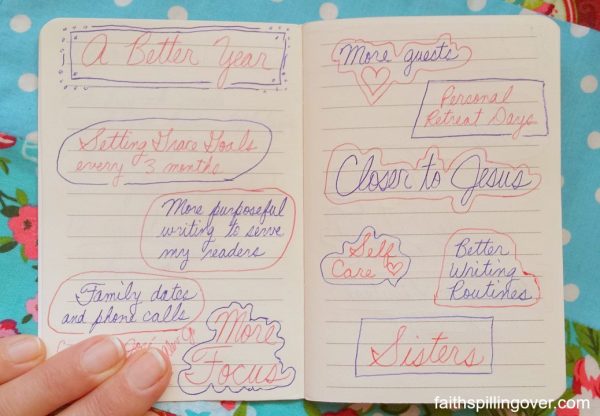 A Better Year
Setting Grace Goals
every 3 months
More purposeful
writing to serve
my readers
Family dates
and phone calls
More
Focus
More guests
Personal
Retreat Days
Closer to Jesus
Self
Care
Better
Writing
Routines
Sisters
faithspillingover.com